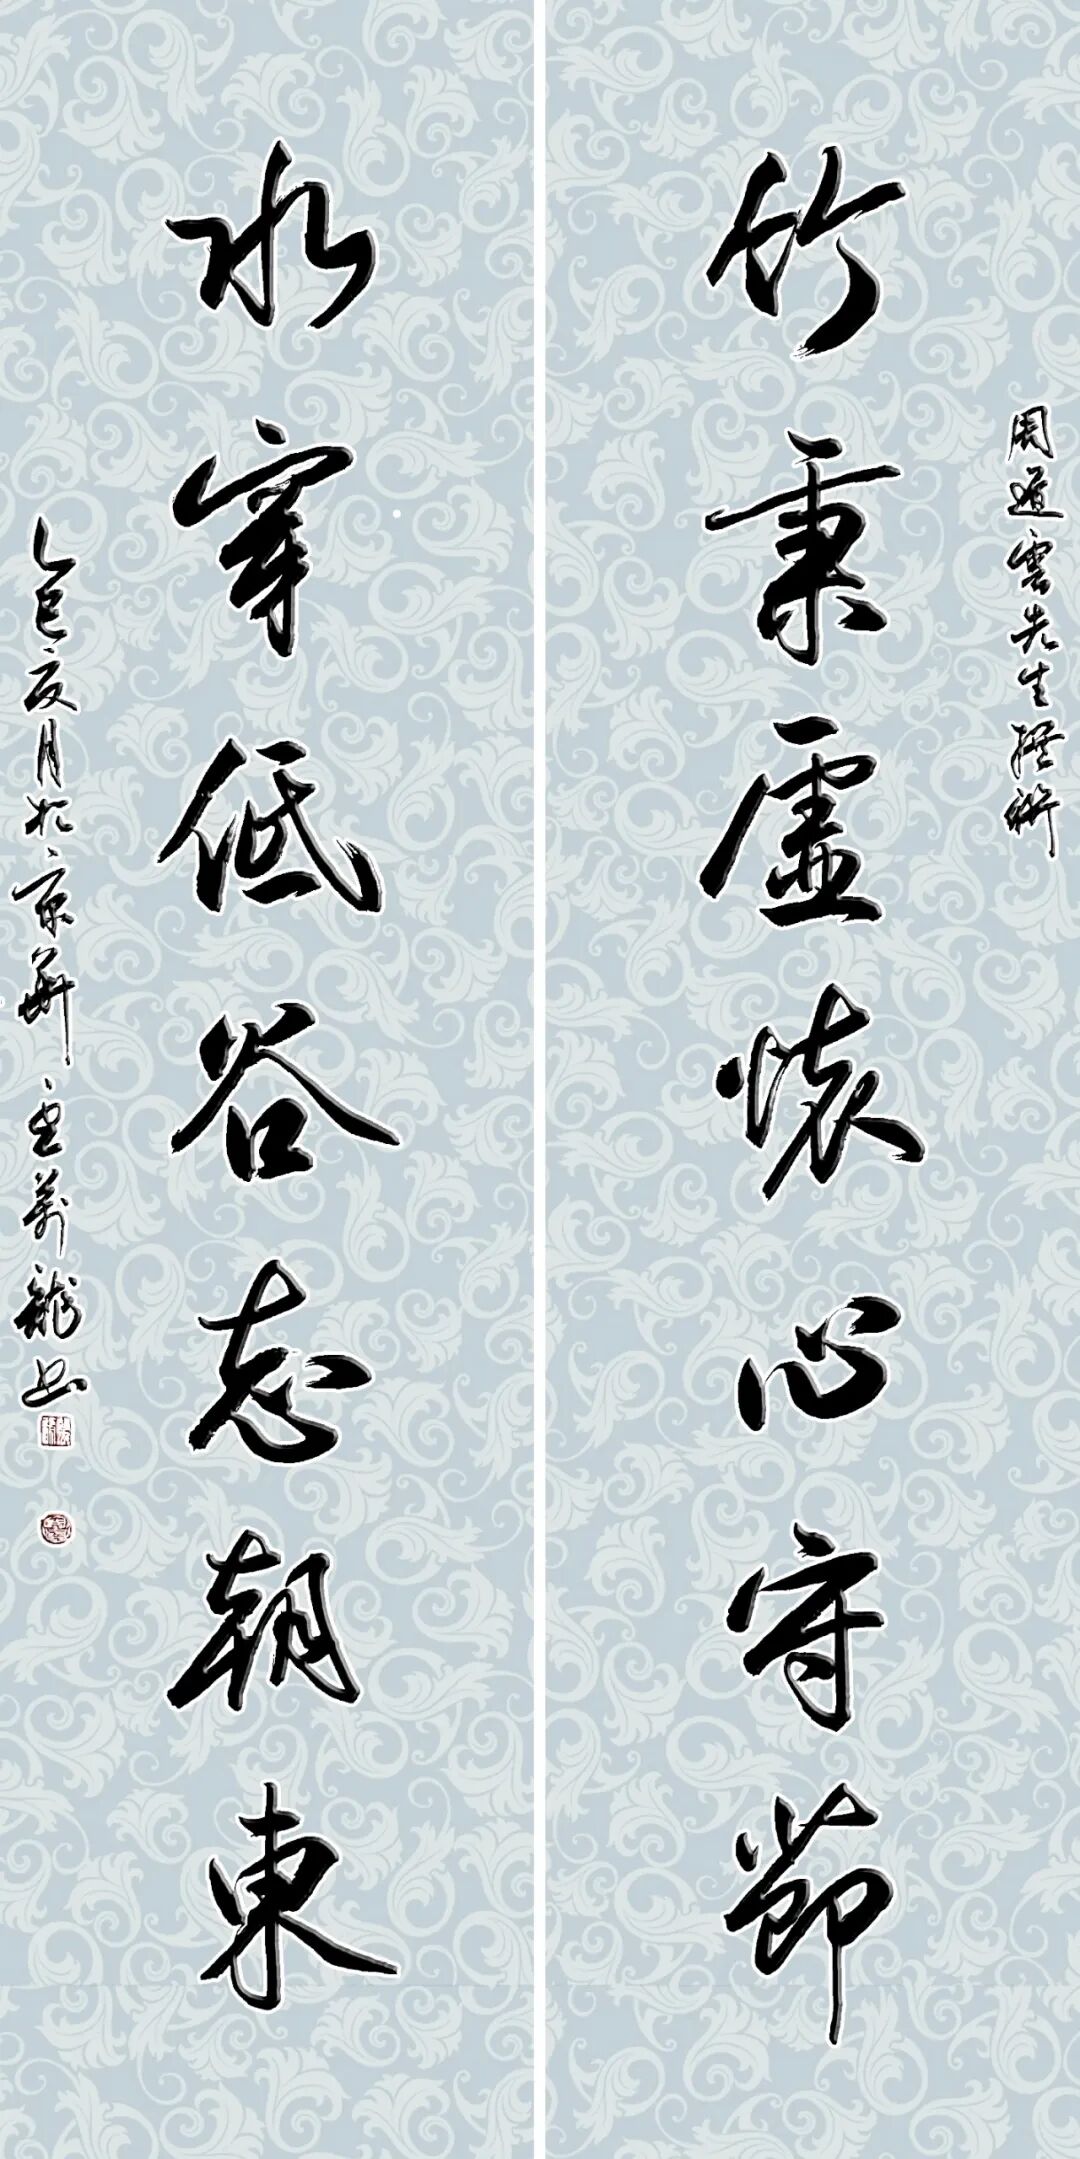 周道雲先生撰聯
竹秉虛懷心守節
水穿低谷志朝東
乙巳夏月於京華萬龍書